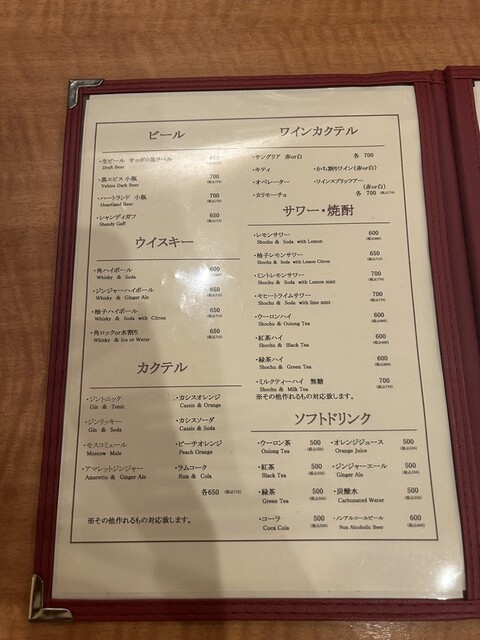 ビール
・生ビール サッポロ黒ラベル
Draft Beer
・黒エビス 小瓶 700
Yebisu Dark Beer (税込770)
・ハートランド 小瓶 700
Heartland Beer (税込770)
・シャンディガフ 650
Shandy Gaff (税込715)
ウイスキー
・角ハイボール 600
Whisky & Soda (税込660)
・ジンジャーハイボール 650
Whisky & Ginger Ale (税込715)
・柚子ハイボール 650
Whisky & Soda with Citron (税込715)
・角ロックor水割り 650
Whisky & Ice or Water (税込715)
カクテル
・ジントニック ・カシスオレンジ
Gin & Tonic Cassis & Orange
・ジンリッキー ・カシスソーダ
Gin & Soda Cassis & Soda
・モスコミュール ・ピーチオレンジ
Moscow Mule Peach Orange
・アマレットジンジャー ・ラムコーク
Amaretto & Ginger Ale Rum & Cola
各650 (税込715)
※その他作れるもの対応致します。
ワインカクテル
・サングリア 赤or白 各 700
・キティ ・かち割りワイン(赤or白)
・オペレーター ・ワインスプリッツアー
(赤or白)
・カリモーチョ 各 700 (税込770)
サワー・焼酎
・レモンサワー 600
Shochu & Soda with Lemon (税込660)
・柚子レモンサワー 650
Shochu & Soda with Lemon Citron (税込715)
・ミントレモンサワー 700
Shochu & Soda with Lemon mint (税込770)
・モヒートライムサワー 700
Shochu & Soda with lime mint (税込770)
・ウーロンハイ 600
Shochu & Oolong Tea (税込660)
・紅茶ハイ 600
Shochu & Black Tea (税込660)
・緑茶ハイ 600
Shochu & Green Tea (税込660)
・ミルクティーハイ 無糖 700
Shochu & Milk Tea (税込770)
※その他作れるもの対応致します。
ソフトドリンク
・ウーロン茶 500 ・オレンジジュース 500
Oolong Tea (税込550) Orange Juice (税込550)
・紅茶 500 ・ジンジャーエール 500
Black Tea (税込550) Ginger Ale (税込550)
・緑茶 500 ・炭酸水 500
Green Tea (税込550) Carbonated Water (税込550)
・コーラ 500 ・ノンアルコールビール 600
Coca Cola (税込550) Non Alcoholic Beer (税込660)